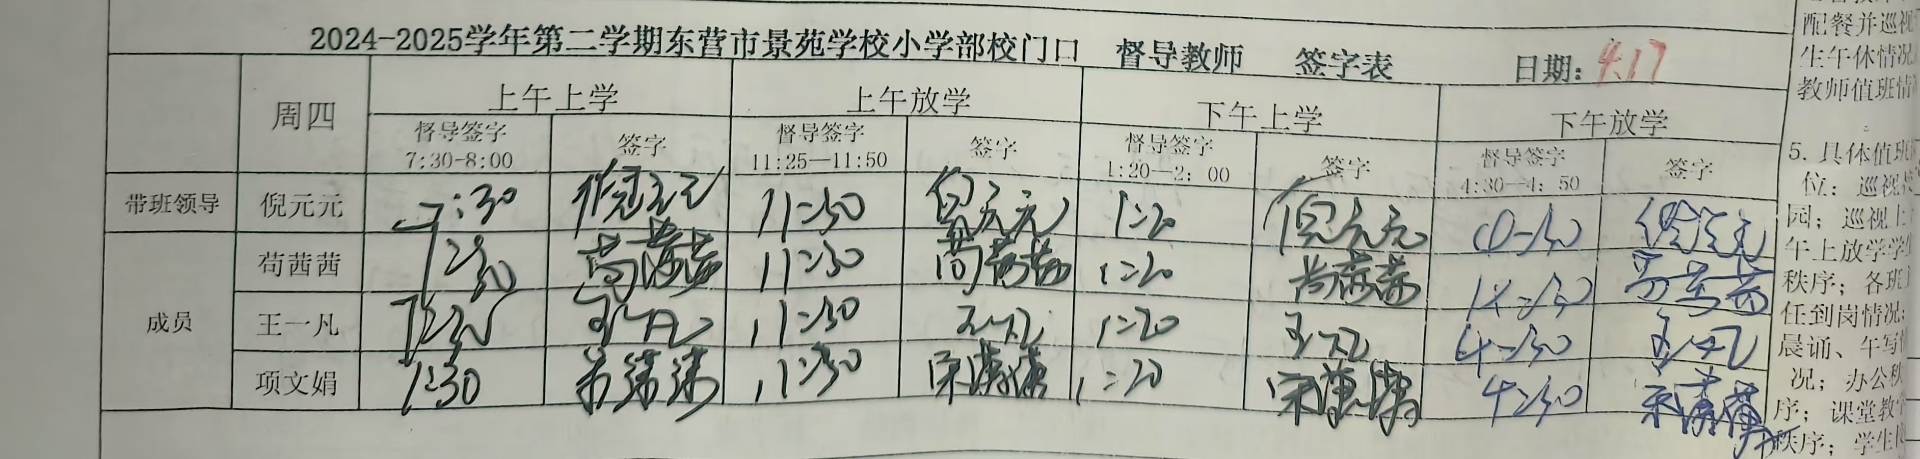 2024-2025学年第二学期东营市景苑学校小学部校门口 督导教师 签字表 日期: 4.17
周四 上午上学 上午放学 下午上学 下午放学
督导签字 签字 督导签字 签字 督导签字 签字 督导签字 签字
7:30-8:00 11:25—11:50 1:20—2:00 4:30—4:50
带班领导 倪元元 7:30 倪元元 11:30 倪元元 1:20 倪元元 倪元元
成员
苟茜茜 7:30 苟茜茜 11:30 苟茜茜 1:20 苟茜茜 4:30 苟茜茜
王一凡 7:30 王一凡 11:30 王一凡 1:20 王一凡 4:30 王一凡
项文娟 7:30 11:30 1:20 4:30
配餐并巡视
生午休情况
教师值班情
5. 具体值班
位：巡视
园；巡视上
午上放学学
秩序；各班
任到岗情况
晨诵、午写
况；办公秩
序；课堂教
秩序；学生